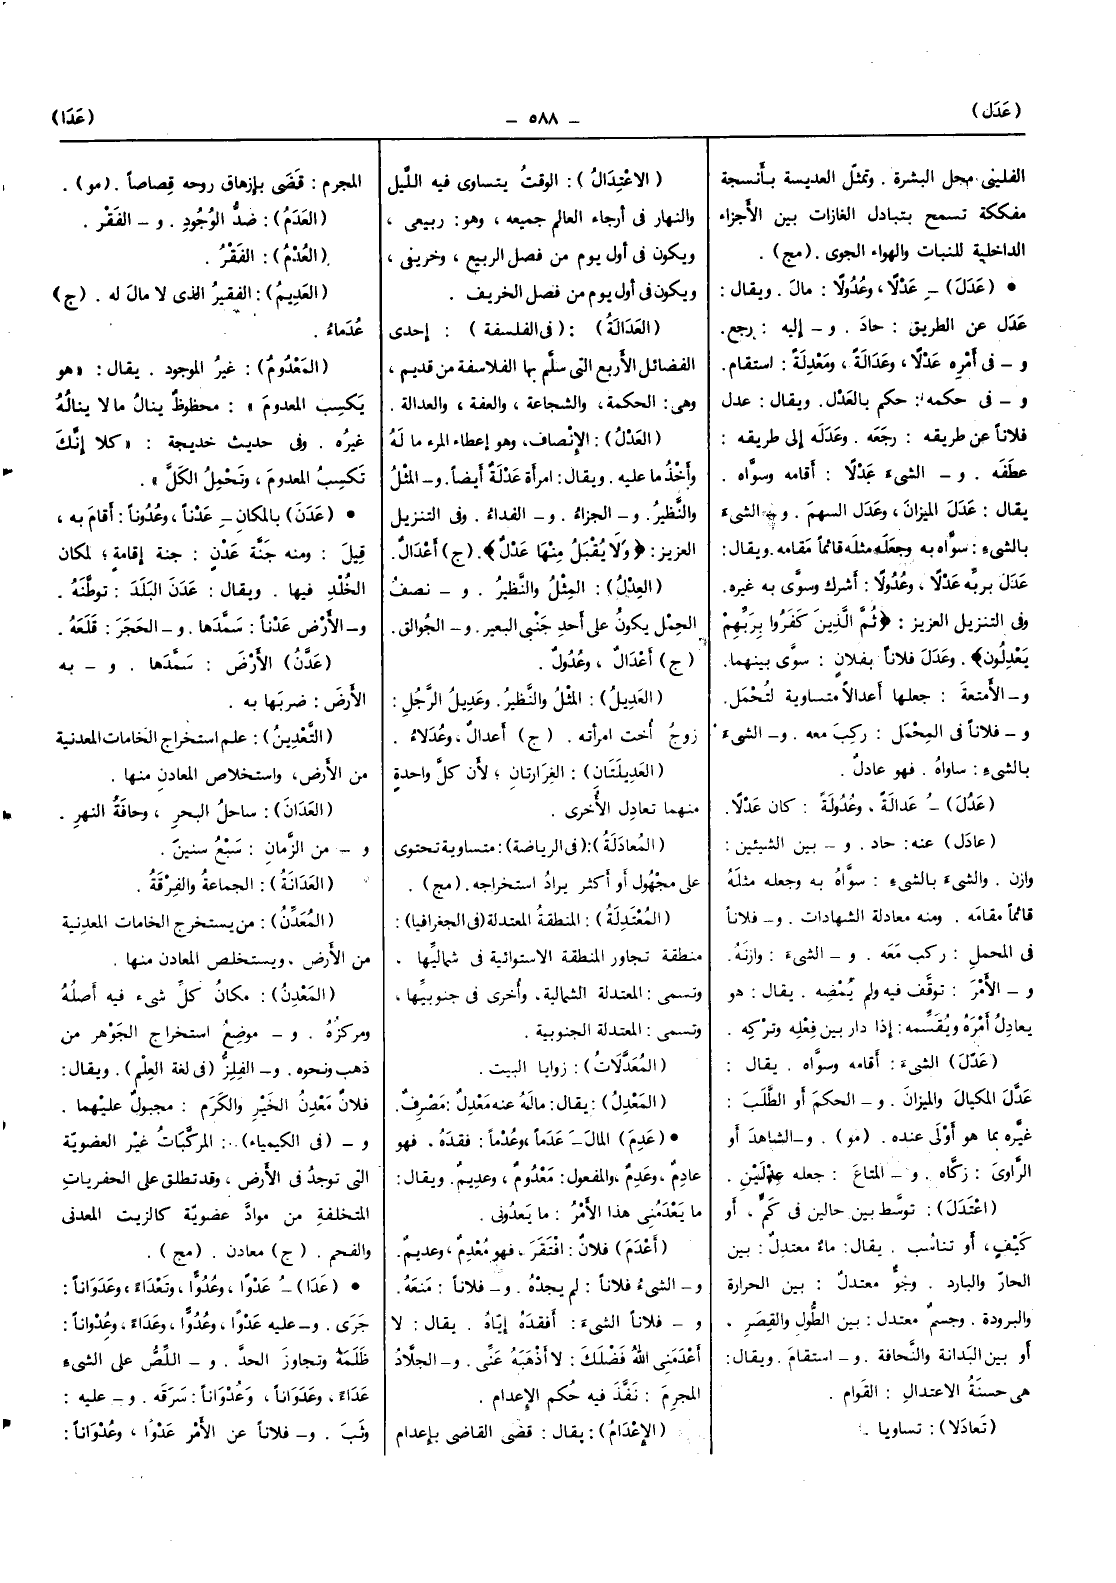 (عَدَل)
– ٥٨٨ –
(عَدَا)
الفلينى محل البشرة . وتمثّل العديسة بأَنسجة
مفككة تسمح بتبادل الغازات بين الأَجزاء
الداخلية للنبات والهواء الجوى . (مج) .
• (عَدَلَ) ـِ عَدْلًا ، وعُدُولًا : مالَ . ويقال :
عَدَل عن الطريق : حادَ . و – إليه : رجع .
و – فى أَمْرِه عَدْلًا ، وعَدَالَةً ، ومَعْدِلَةً : استقام .
و – فى حكمه : حكم بالعَدْل . ويقال : عدل
فلاناً عن طريقه : رجَعَه . وعَدَلَه إلى طريقه :
عطَفَه . و – الشىءَ عَدْلًا : أَقامه وسوَّاه .
يقال : عَدَلَ الميزانَ ، وعَدَل السهمَ . و – الشىءَ
بالشىءِ : سوَّاه به وجعلَه مثلَه قائماً مقامَه . ويقال :
عَدَلَ بربِّه عَدْلًا ، وعُدُولًا : أَشرك وسوَّى به غيره .
وفى التنزيل العزيز : ﴿ثُمَّ الَّذِينَ كَفَرُوا بِرَبِّهِمْ
يَعْدِلُون﴾ . وعَدَلَ فلاناً بفلان : سوَّى بينهما .
و – الأَمتعةَ : جعلها أَعدالًا متساوية لتُحْمَل .
و – فلاناً فى المِحْمَل : ركِبَ معه . و – الشىءَ
بالشىءِ : ساواهُ . فهو عادلٌ .
(عَدُلَ) ـُ عَدالَةً ، وعُدُولَةً : كان عَدْلًا .
(عادَل) عنه : حاد . و – بين الشيئين :
وازن . والشىءَ بالشىءِ : سوَّاهُ به وجعله مثلَهُ
قائماً مقامَه . ومنه معادلة الشهادات . و – فلاناً
فى المحملِ : ركب مَعَه . و – الشىءَ : وازنَهُ .
و – الأَمْرَ : توقَّف فيه ولم يُمْضِه . يقال : هو
يعادِلُ أَمْرَهُ ويُقَسِّمه : إذا دار بين فِعْلِه وترْكِه .
(عَدَّلَ) الشىءَ : أَقامه وسوَّاه . يقال :
عَدَّلَ المكيالَ والميزانَ . و – الحكمَ أَو الطَّلَبَ :
غيَّره بما هو أَوْلَى عنده . (مو) . و – الشاهدَ أَو
الرَّاوىَ : زكَّاه . و – المتاعَ : جعله عِدْلَيْنِ .
(اعْتَدَلَ) : توسَّط بين حالين فى كَمٍّ ، أَو
كَيْفٍ ، أَو تناسُب . يقال : ماءٌ معتدِلٌ : بين
الحارّ والبارد . وجوٌّ معتدلٌ : بين الحرارة
والبرودة . وجسمٌ معتدل : بين الطُّول والقِصَر ،
أَو بين البَدانة والنَّحافة . و – استقامَ . ويقال :
هى حسنَةُ الاعتدالِ : القَوام .
(تَعادَلا) : تساويا .
(الاعْتِدَالُ) : الوقتُ يتساوى فيه اللَّيل
والنهار فى أَرجاء العالم جميعه ، وهو : ربيعى ،
ويكون فى أَول يوم من فصل الربيع ، وخريفى ،
ويكون فى أَول يوم من فصل الخريف .
(العَدَالَةُ) : (فى الفلسفة) : إحدى
الفضائل الأَربع التى سلَّم بها الفلاسفة من قديم ،
وهى : الحكمة ، والشجاعة ، والعفة ، والعدالة .
(العَدْلُ) : الإِنْصاف ، وهو إعطاء المرء ما لَهُ
وأَخْذُ ما عليه . ويقال : امرأَة عَدْلَةٌ أَيضاً . و – المِثْلُ
والنَّظيرُ . و – الجزاءُ . و – الفداءُ . وفى التنزيل
العزيز : ﴿وَلَا يُقْبَلُ مِنْهَا عَدْلٌ﴾ . (ج) أَعْدَالٌ .
(العِدْلُ) : المِثْلُ والنَّظيرُ . و – نصفُ
الحِمْل يكونُ على أَحدِ جَنْبَى البعير . و – الجُوالق .
(ج) أَعْدَالٌ ، وعُدُولٌ .
(العَدِيلُ) : المِثْلُ والنَّظيرُ . وعَدِيلُ الرَّجُلِ :
زوجُ أُخت امرأَته . (ج) أَعدالٌ ، وعُدَلَاءُ .
(العَدِيلَتَانِ) : الغِرَارتانِ ؛ لأَن كلَّ واحدة
منهما تعادِل الأُخرى .
(المُعادَلَةُ) : (فى الرياضة) : متساوية تحتوى
على مجْهُول أَو أَكثر يرادُ استخراجه . (مج) .
(المُعْتَدِلَةُ) : المنطقةُ المعتدلة (فى الجغرافيا) :
منطقة تجاور المنطقة الاستوائية فى شماليّها ،
وتسمى : المعتدلة الشمالية ، وأُخرى فى جنوبيِّها ،
وتسمى : المعتدلة الجنوبية .
(المُعَدَّلَاتُ) : زوايا البيت .
(المَعْدِلُ) : يقال : مالَهُ عنه مَعْدِلٌ : مَصْرِفٌ .
• (عَدِمَ) المالَ ـَ عَدَماً ، وعُدْماً : فقدَهُ . فهو
عادِمٌ ، وعَدِمٌ ، والمفعول : مَعْدُومٌ ، وعديمٌ . ويقال :
ما يَعْدَمُنِى هذا الأَمْرُ : ما يَعدُونى .
(أَعْدَمَ) فلانٌ : افْتَقَرَ ، فهو مُعْدِمٌ ، وعديمٌ .
و – الشىءُ فلاناً : لم يجدْهُ . و – فلاناً : مَنعَهُ .
و – فلاناً الشىءَ : أَفقدَهُ إيّاهُ . يقال : لا
أَعْدَمَنِى اللهُ فَضْلَكَ : لا أَذْهَبَهُ عَنِّى . و – الجلَّادُ
المجرِمَ : نَفَّذَ فيه حُكم الإِعدام .
(الإِعْدَامُ) : يقال : قضى القاضى بإِعدام
المجرم : قَضَى بإزهاق روحه قِصاصاً . (مو) .
(العَدَمُ) : ضدُّ الوُجُودِ . و – الفَقْر .
(العُدْمُ) : الفَقْرُ .
(العَدِيمُ) : الفقيرُ الذى لا مالَ له . (ج)
عُدَماءُ .
(المَعْدُومُ) : غيرُ الموجود . يقال : « هو
يَكسِب المعدومَ » : محظوظٌ ينالُ ما لا ينالُهُ
غيرُه . وفى حديث خديجة : « كلا إنَّكَ
تَكسِبُ المعدومَ ، وتَحْمِلُ الكَلَّ » .
• (عَدَنَ) بالمكانِ ـِ عَدْناً ، وعُدُوناً : أَقامَ به ،
قِيلَ : ومنه جَنَّة عَدْنٍ : جنة إقامةٍ ؛ لمكان
الخُلْدِ فيها . ويقال : عَدَنَ البَلَدَ : توطَّنَهُ .
و – الأَرْضَ عَدْناً : سَمَّدَها . و – الحَجَرَ : قَلَعَهُ .
(عَدَّنَ) الأَرْضَ : سَمَّدَها . و – به
الأَرضَ : ضربَها به .
(التَّعْدِينُ) : علم استخراج الخامات المعدنية
من الأَرض ، واستخلاص المعادن منها .
(العَدَانَ) : ساحلُ البحرِ ، وحافَةُ النهرِ .
و – من الزَّمانِ : سَبْعُ سنينَ .
(العَدَانَةُ) : الجماعةُ والفِرْقَةُ .
(المُعَدِّنُ) : من يستخرج الخامات المعدِنية
من الأَرض ، ويستخلص المعادن منها .
(المَعْدِنُ) : مكانُ كلِّ شىء فيه أَصلُهُ
ومركزُهُ . و – موضِعُ استخراج الجَوْهر من
ذهب ونحوه . و – الفِلِزُّ (فى لغة العِلْم) . ويقال :
فلانٌ مَعْدِنُ الخَيْرِ والكَرَم : مجبولٌ عليْهما .
و – (فى الكيمياء) : المركَّباتُ غيْر العضويّة
التى توجدُ فى الأَرض ، وقد تطلق على الحفرياتِ
المتخلفةِ من موادَّ عضويّة كالزيت المعدنى
والفحم . (ج) معادن . (مج) .
• (عَدَا) ـُ عَدْوًا ، وعُدُوًّا ، وتَعْدَاءً ، وعَدَوَاناً :
جَرَى . و – عليه عَدْوًا ، وعُدُوًّا ، وعَدَاءً ، وعُدْوَاناً :
ظَلَمَهُ وتجاوز الحدَّ . و – اللِّصُّ على الشىءِ
عَدَاءً ، وعَدَوَاناً ، وعُدْوَاناً : سَرَقَه . و – عليه :
وثَبَ . و – فلاناً عن الأَمْرِ عَدْوًا ، وعُدْوَاناً :